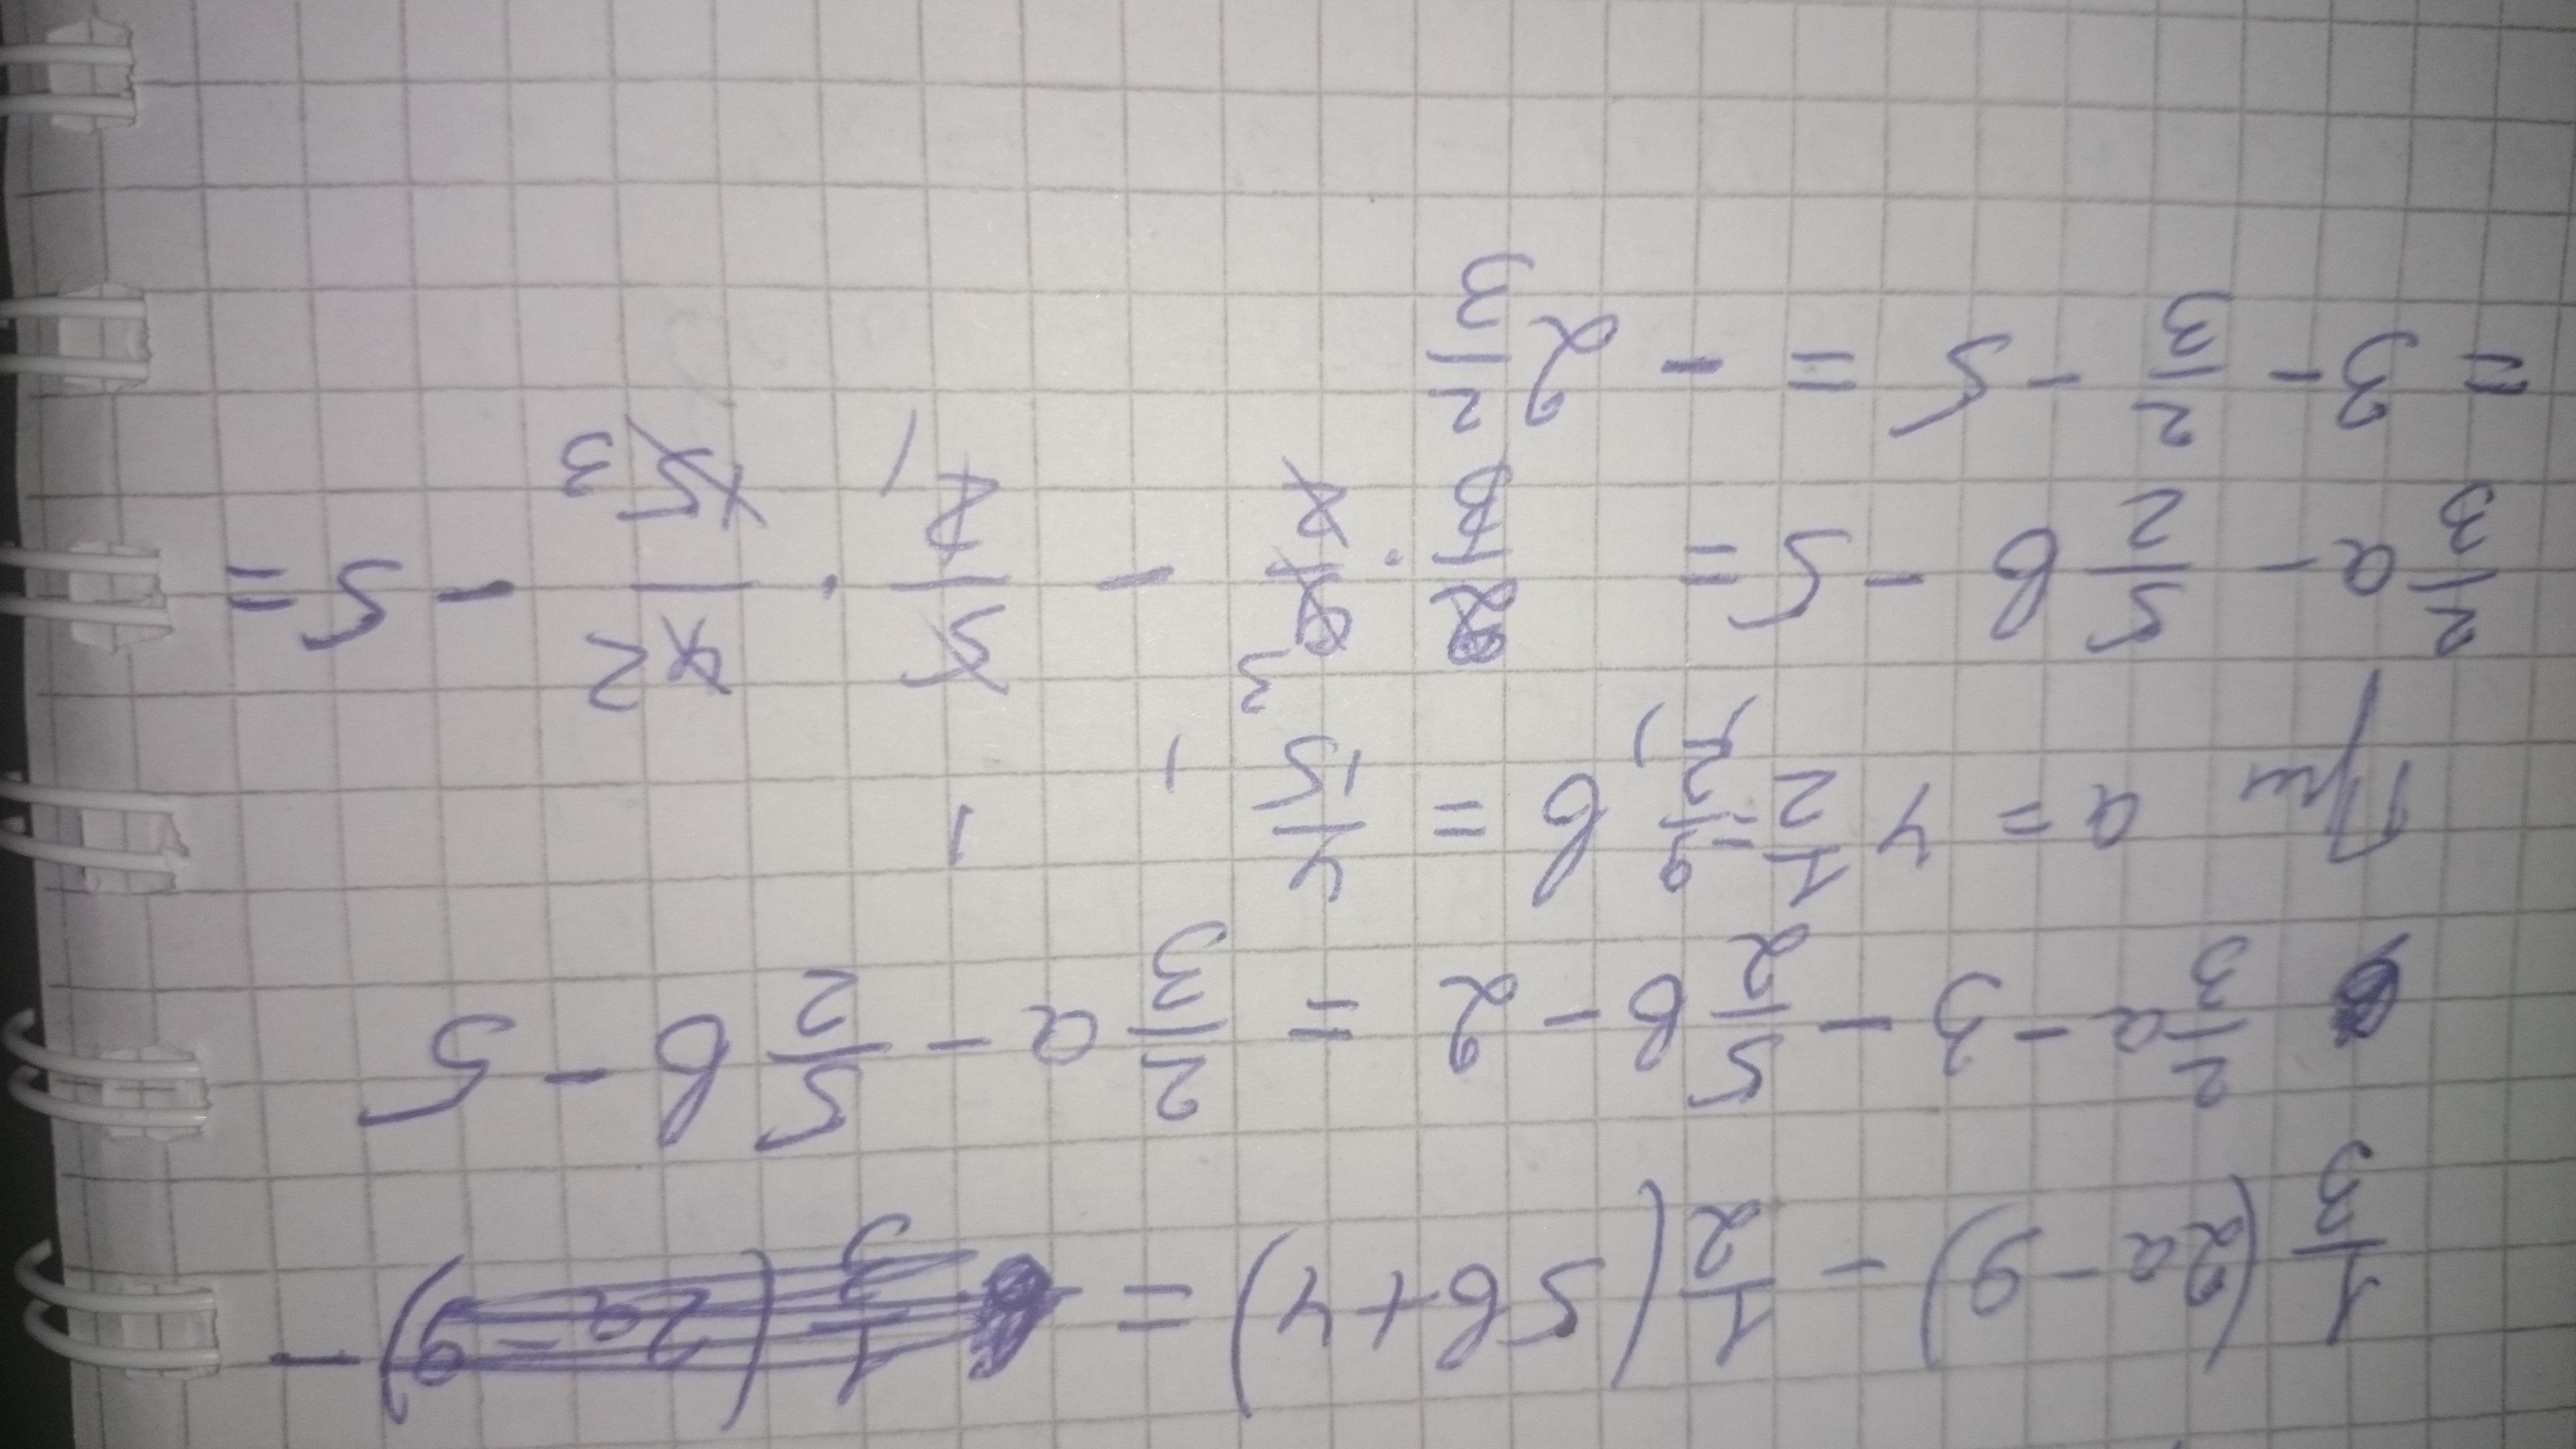 1/3 (2a - 9) - 1/2 (5в + 4) = 1/3 (2a - 9) -
2/3 a - 3 - 5/2 в - 2 = 2/3 a - 5/2 в - 5
При a = 4 1/2 = 9/2, в = 4/15
2/3 a - 5/2 в - 5 = 2/3 · 9/2 - 5/2 · 4/15 - 5 =
= 3 - 2/3 - 5 = - 2 2/3